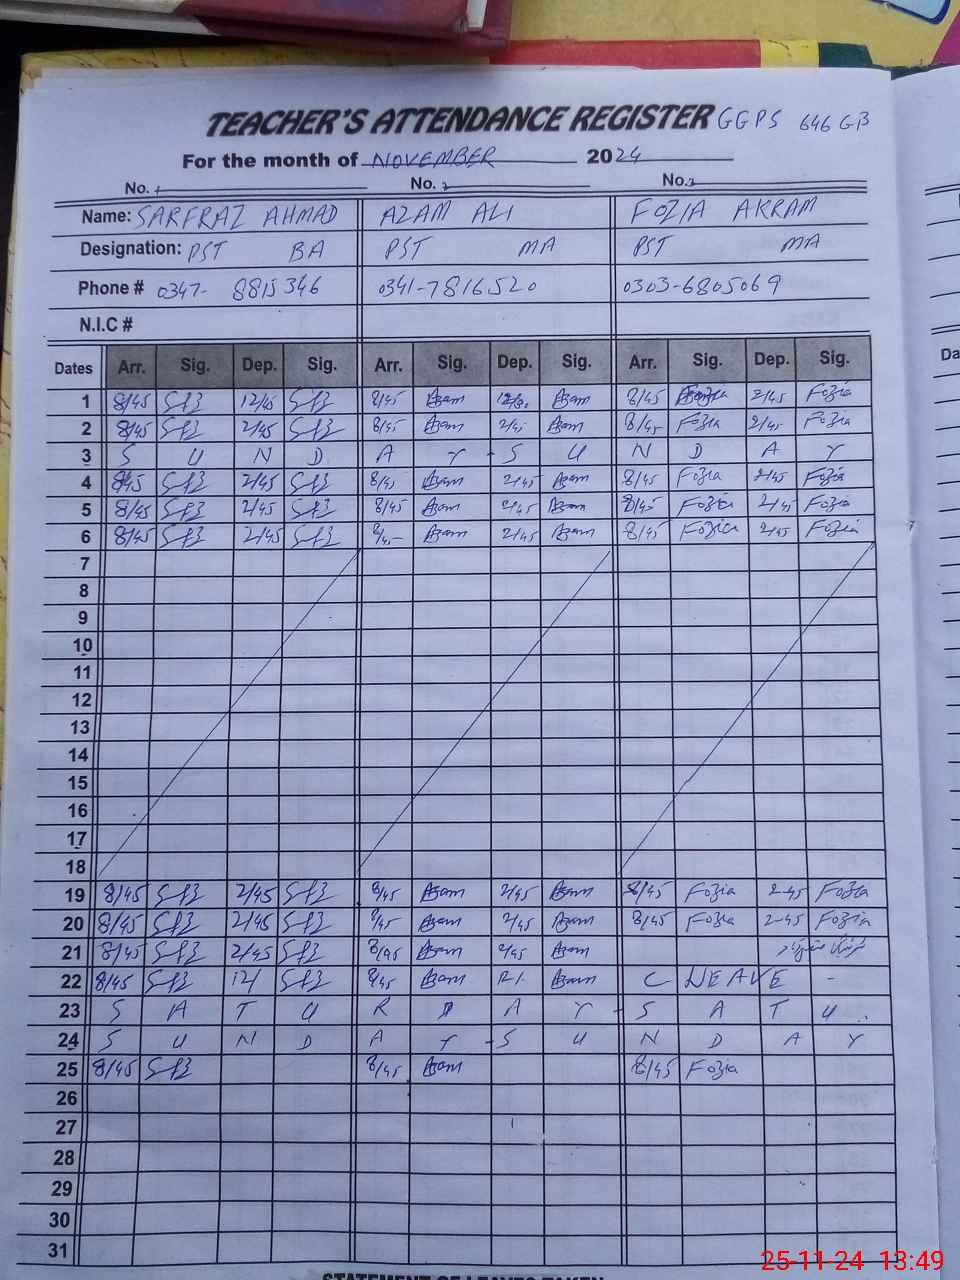 TEACHER'S ATTENDANCE REGISTER GGPS 646 GB
For the month of NOVEMBER 2024
No. 1 No. 2 No. 3
Name: SARFRAZ AHMAD AZAM ALI FOZIA AKRAM
Designation: PST BA PST MA PST MA
Phone # 0347- 8815346 0341-7816520 0303-6805069
N.I.C #
Dates Arr. Sig. Dep. Sig. Arr. Sig. Dep. Sig. Arr. Sig. Dep. Sig.
1 8/45 12/45 8/45 Azam Azam 8/45 2/45 Fozia
2 8/45 2/45 8/45 Azam 2/45 Azam 8/45 Fozia 2/45 Fozia
3 S U N D A Y - S U N D A Y
4 8/45 2/45 8/45 Azam 2/45 Azam 8/45 Fozia 2/45 Fozia
5 8/45 2/45 8/45 Azam 2/45 Azam 8/45 Fozia 2/45 Fozia
6 8/45 2/45 Azam 2/45 Azam 8/45 Fozia 2/45 Fozia
7
8
9
10
11
12
13
14
15
16
17
18
19 8/45 2/45 8/45 Azam 2/45 Azam 8/45 Fozia 2-45 Fozia
20 8/45 2/45 8/45 Azam 2/45 Azam 8/45 Fozia 2-45 Fozia
21 8/45 2/45 8/45 Azam 2/45 Azam
22 8/45 12/ 8/45 Azam Azam C LEAVE -
23 S A T U R D A Y - S A T U
24 S U N D A Y - S U N D A Y
25 8/45 8/45 Azam 8/45 Fozia
26
27
28
29
30
31
STATEMENT OF LEAVES TAKEN
Da
25-11-24 13:49